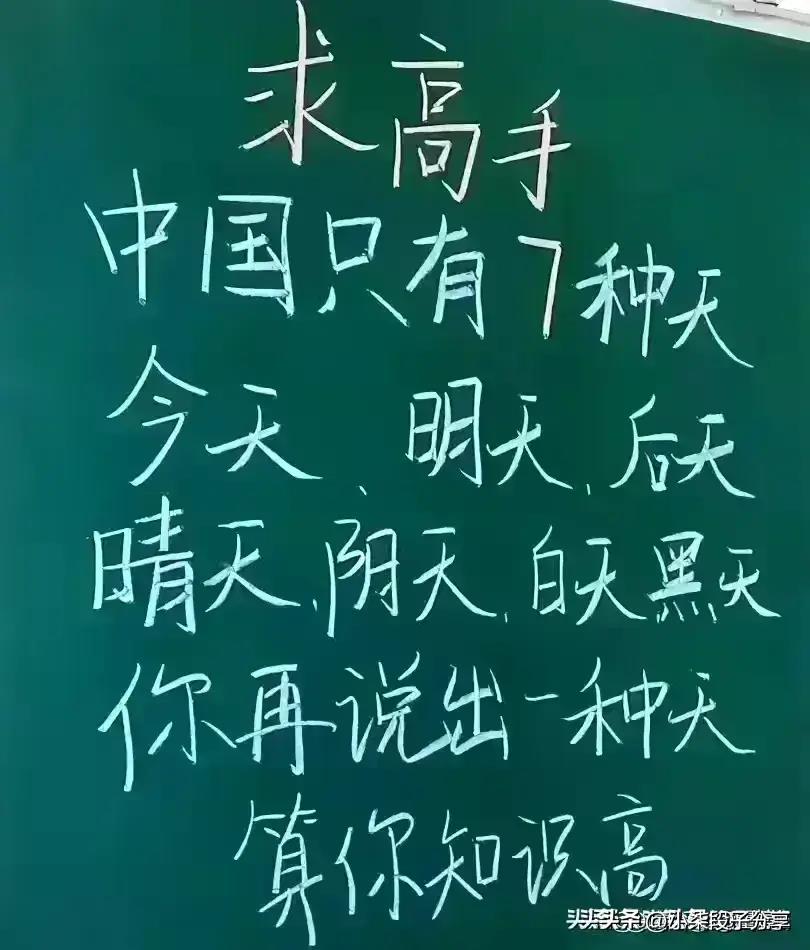 求高手
中国只有7种天
今天、明天、后天
晴天、阴天、白天黑天
你再说出一种天
算你知识高
头条 @小柔段子分享